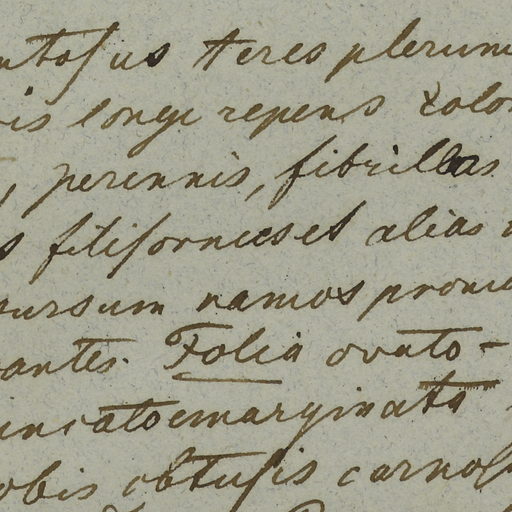 ntosus teres plerum
is longe repens &colo
, perennis, fibrillas
s filiformes et alias
sursum ramos prom
antes. Folia ovato-
uncatoemarginata
obis obtusis carnos